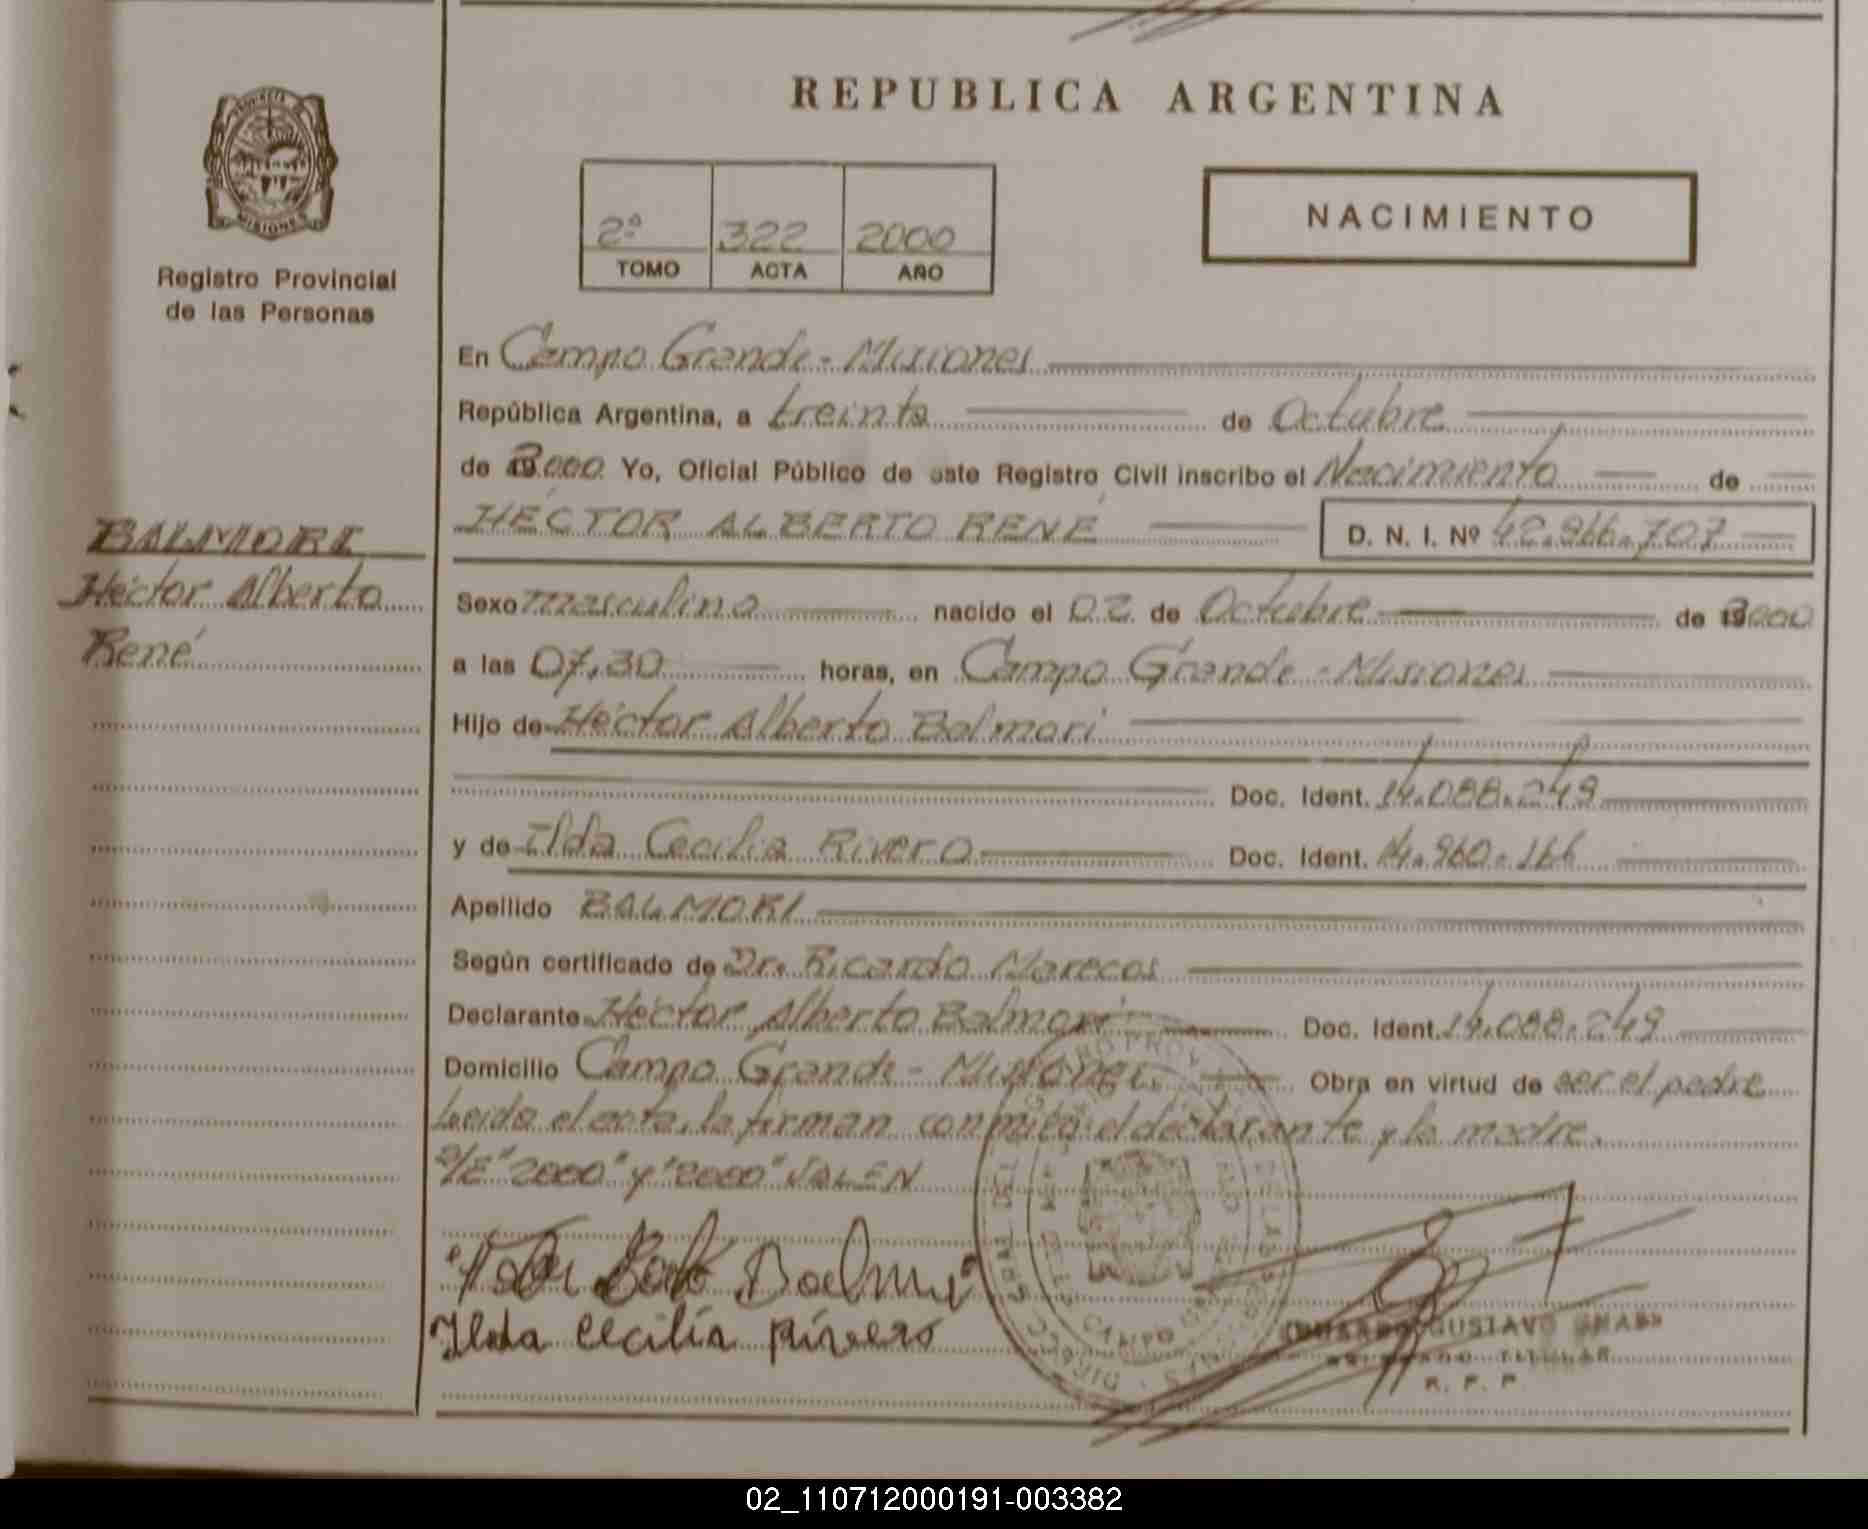 REPUBLICA ARGENTINA
PROVINCIA DE
MISIONES
Registro Provincial
de las Personas
2ª 322 2000
TOMO ACTA AÑO
NACIMIENTO
En Campo Grande - Misiones
República Argentina, a treinta de Octubre
de 2000 Yo, Oficial Público de este Registro Civil inscribo el Nacimiento de
HÉCTOR ALBERTO RENÉ D. N. I. Nº 42.966.707
BALMORI
Héctor Alberto
René
Sexo masculino nacido el 02 de Octubre de 2000
a las 07,30 horas, en Campo Grande - Misiones
Hijo de Héctor Alberto Balmori
Doc. Ident. 14.088.249
y de Ilda Cecilia Rivero Doc. Ident. 14.960.166
Apellido BALMORI
Según certificado de Dr. Ricardo Marecos
Declarante Héctor Alberto Balmori Doc. Ident. 14.088.249
Domicilio Campo Grande - Misiones Obra en virtud de ser el padre
Leida el acta, la firman conmigo el declarante y la madre.
S/E "2000" y "2000" VALEN
Balmori
Ilda Cecilia Rivero
CAMPO
GUSTAVO
TITULAR
R. P. P.
02_110712000191-003382